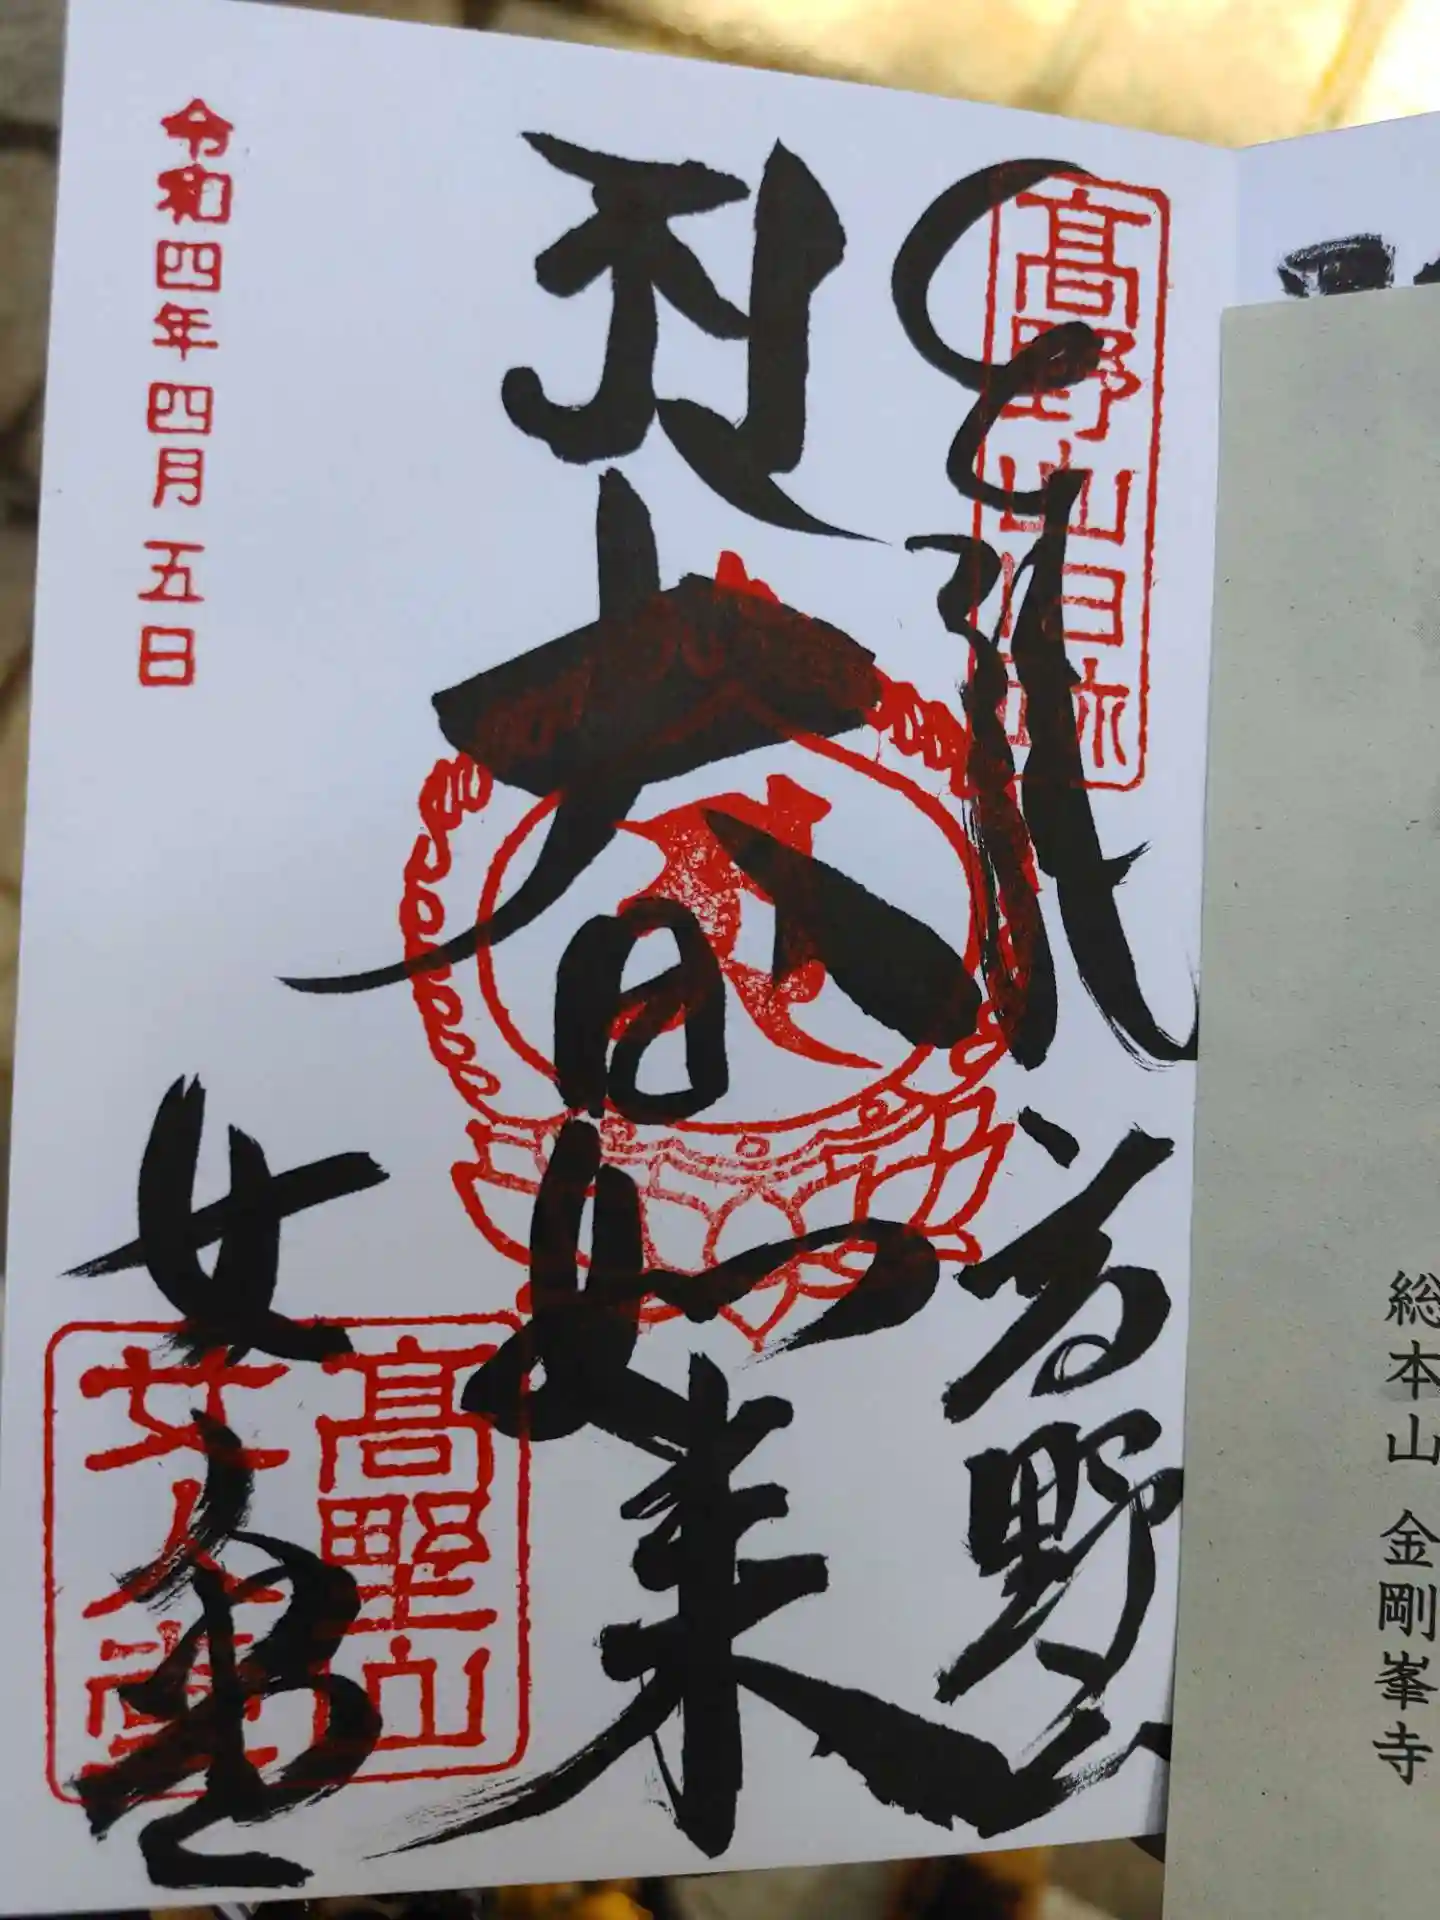 総本山 金剛峯寺
奉拝 高野山
高野山旧跡
大日如来
女人堂
高野山
女人堂
令和四年四月五日